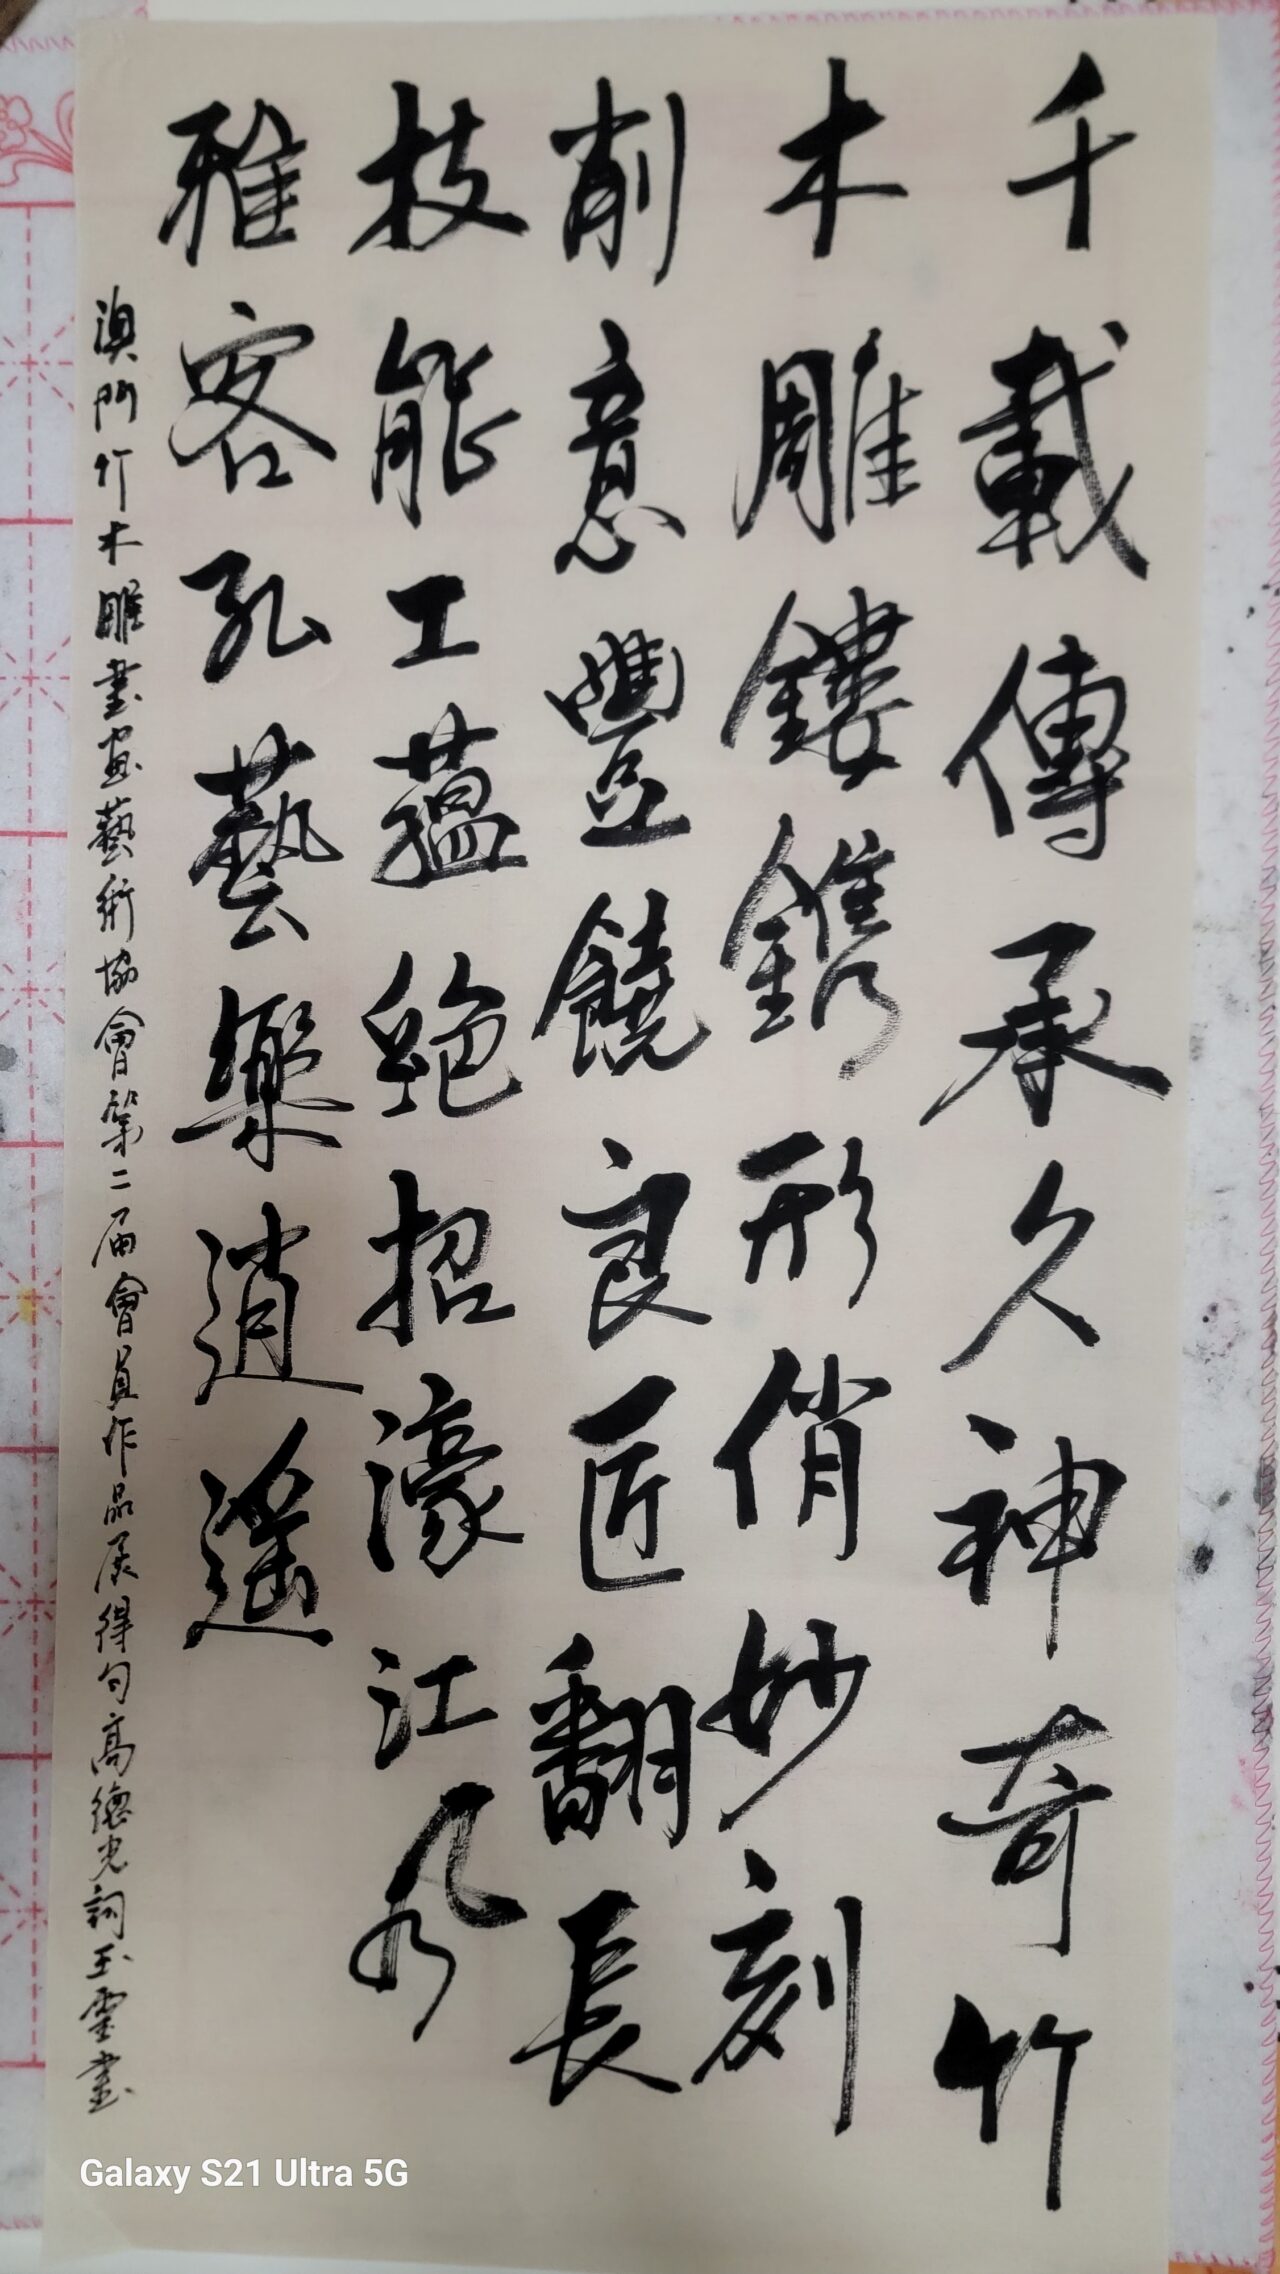 千載傳承久神奇竹
木雕鏤鐫形俏妙刻
削意豐饒良匠翻長
技能工蘊絕招濠江風
雅客孔藝樂逍遙
澳門竹木雕書畫藝術協會第二屆會員作品展得句高德光詞玉雲書
Galaxy S21 Ultra 5G